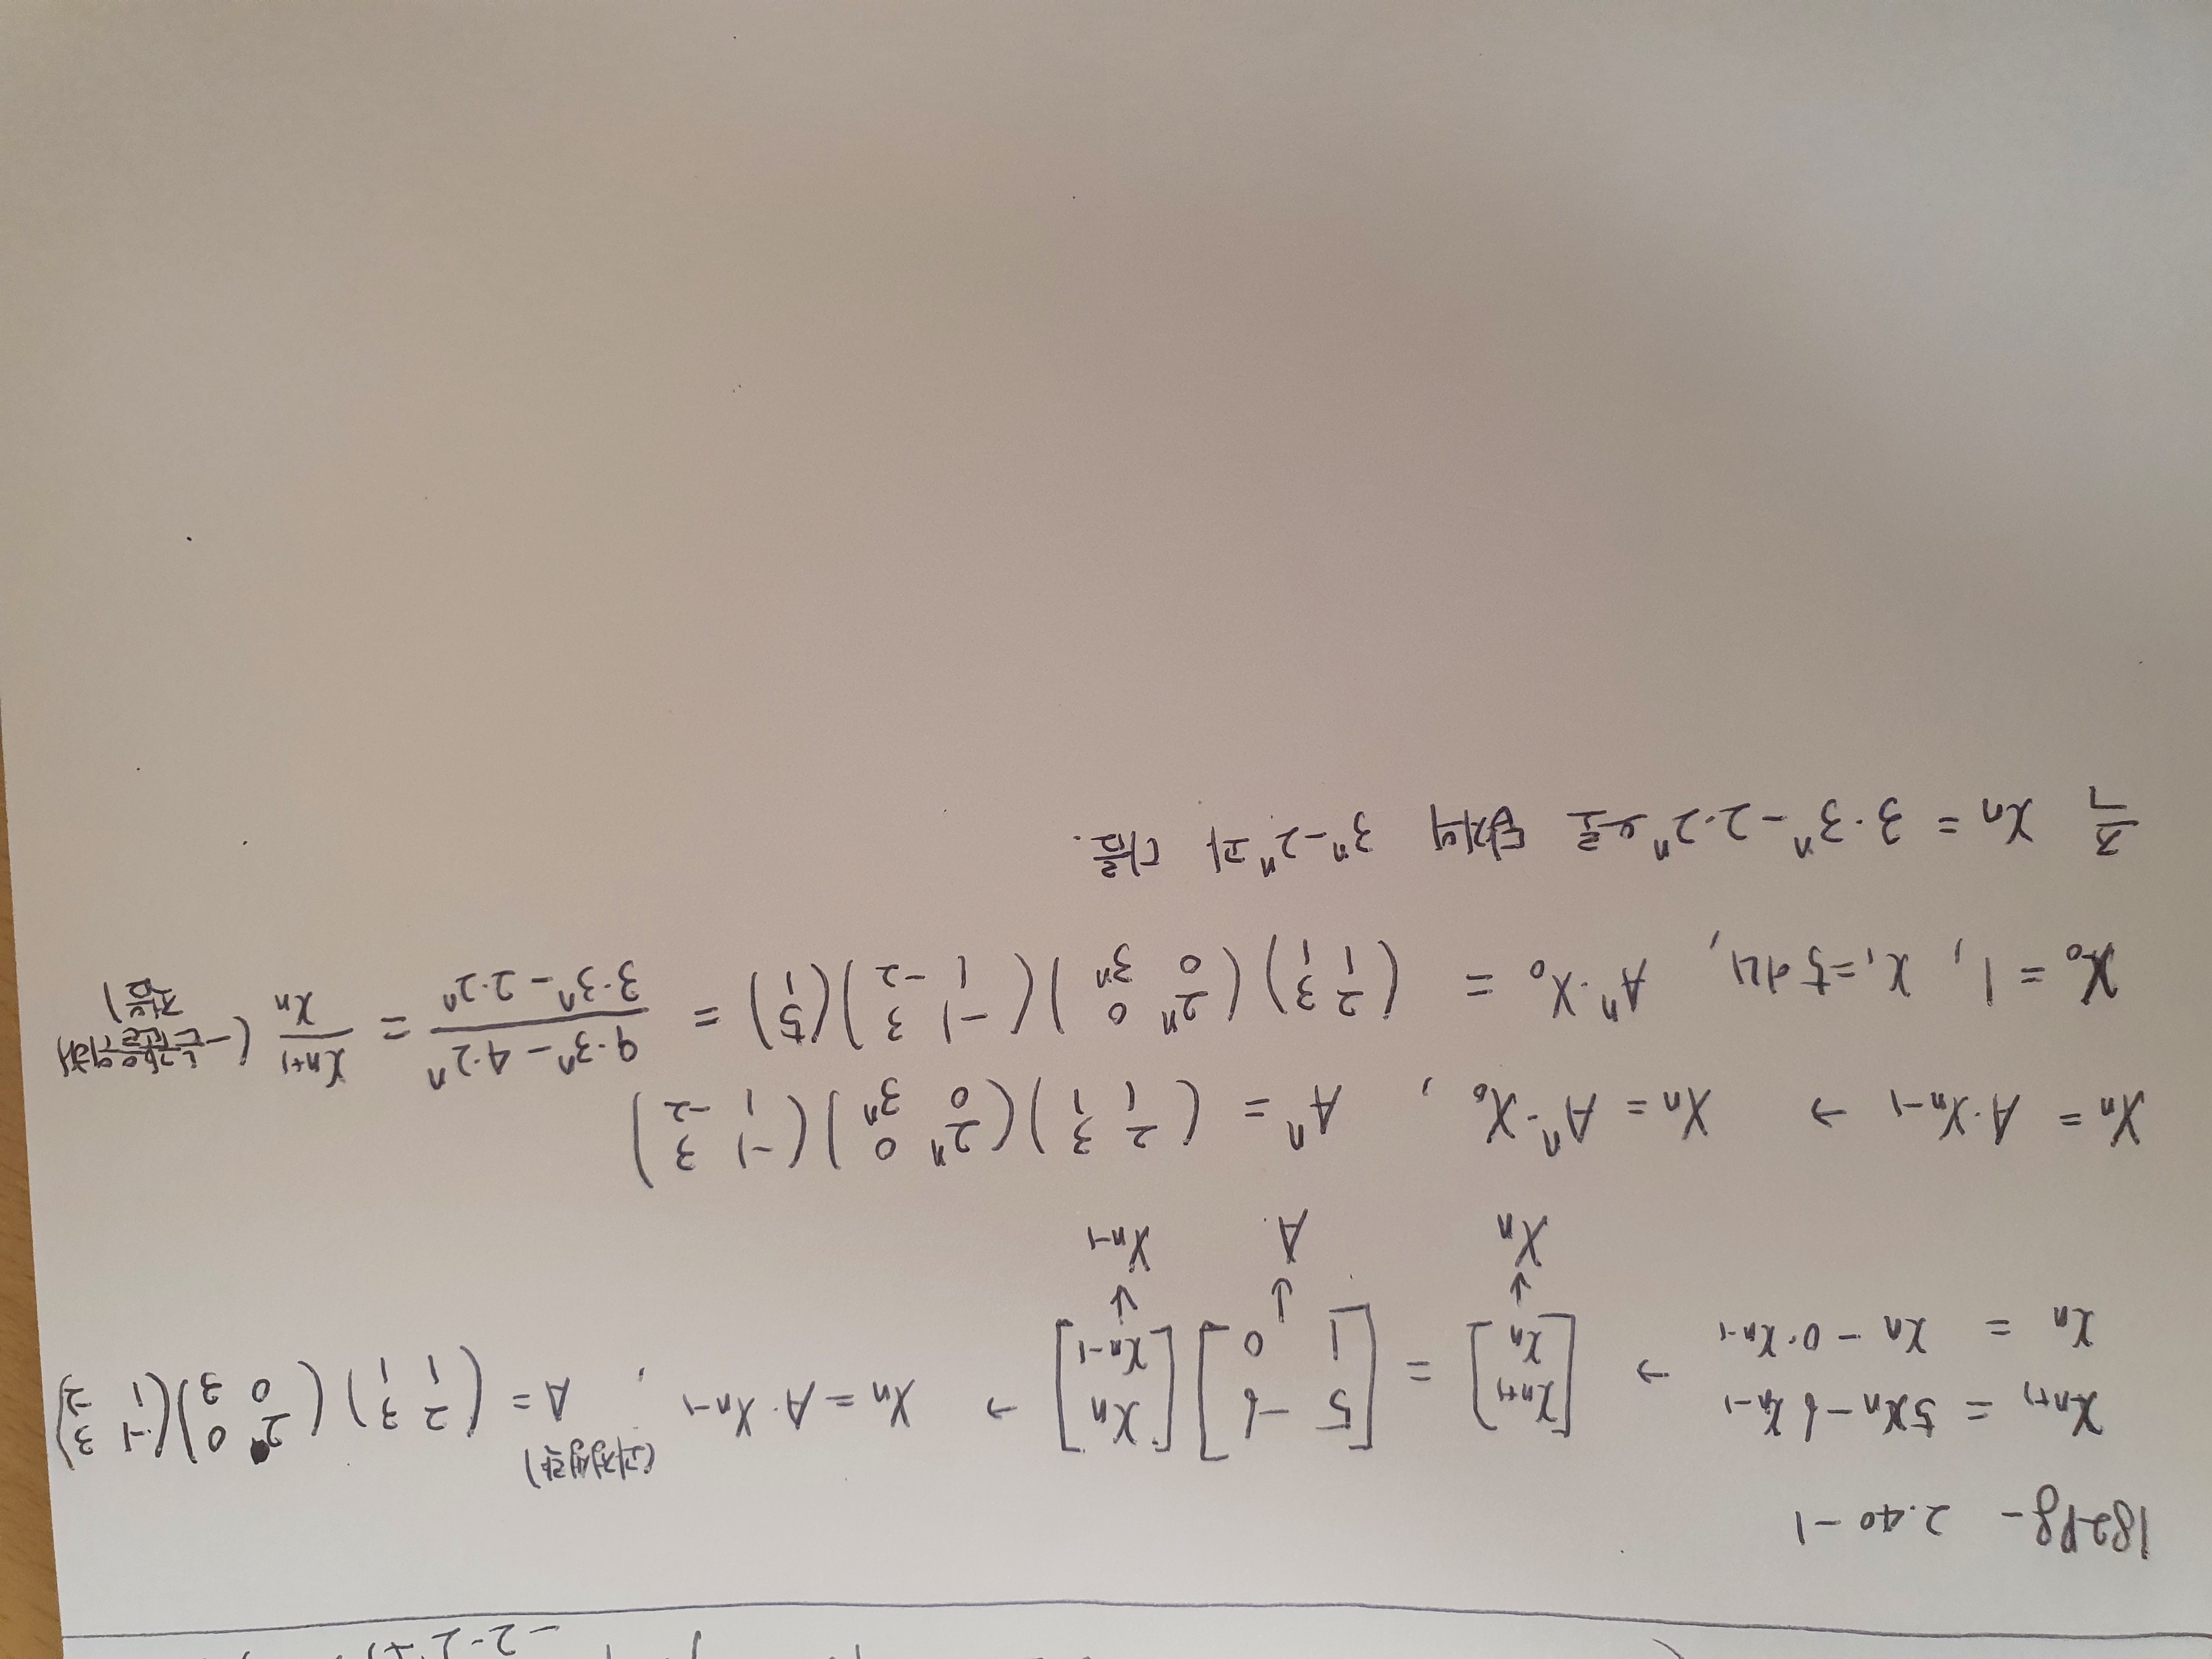 -2·2+1
182pg - 2.40-1
x_{n+1} = 5x_n - 6x_{n-1}
x_n = x_n - 0·x_{n-1}
→ [x_{n+1} x_n] = [5 -6 1 0] [x_n x_{n-1}] → X_n = A·X_{n-1} , A = (2 3 1 1) (2 0 0 3) (-1 3 1 -2)
↓ ↓ ↓
X_n A X_{n-1}
X_n = A·X_{n-1} → X_n = A^n·X_0 , A^n = (2 3 1 1) (2^n 0 0 3^n) (-1 3 1 -2)
x_0 = 1, x_1 = 5 A^n·X_0 = (2 3 1 1) (2^n 0 0 3^n) (-1 3 1 -2) (5 1) = 9·3^n - 4·2^n / 3·3^n - 2·2^n = x_{n+1} / x_n
즉 x_n = 3·3^n - 2·2^n 으로 답지의 3^n - 2^n 과 다름.